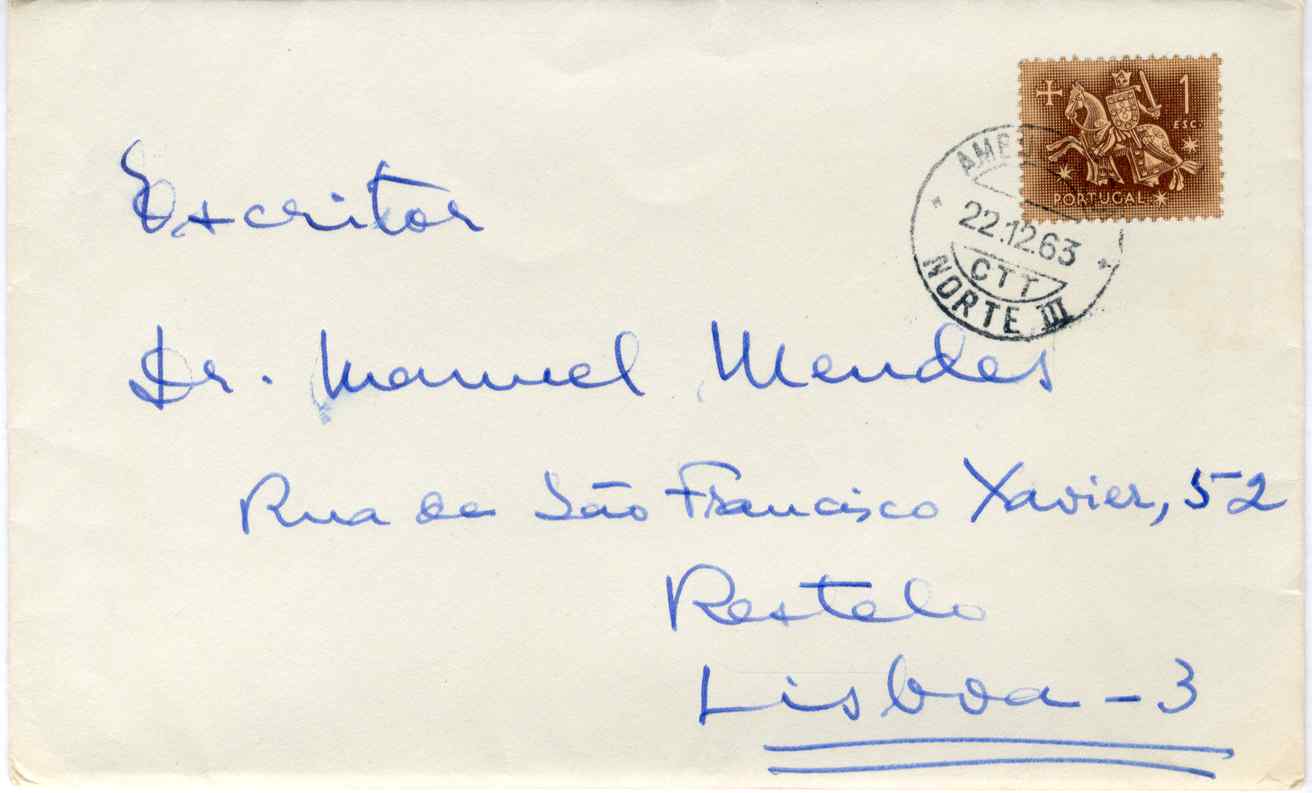 1
ESC.
PORTUGAL
22.12.63
CTT
NORTE III
Escritor
Dr. Manuel Mendes
Rua de São Francisco Xavier, 52
Restelo
Lisboa - 3